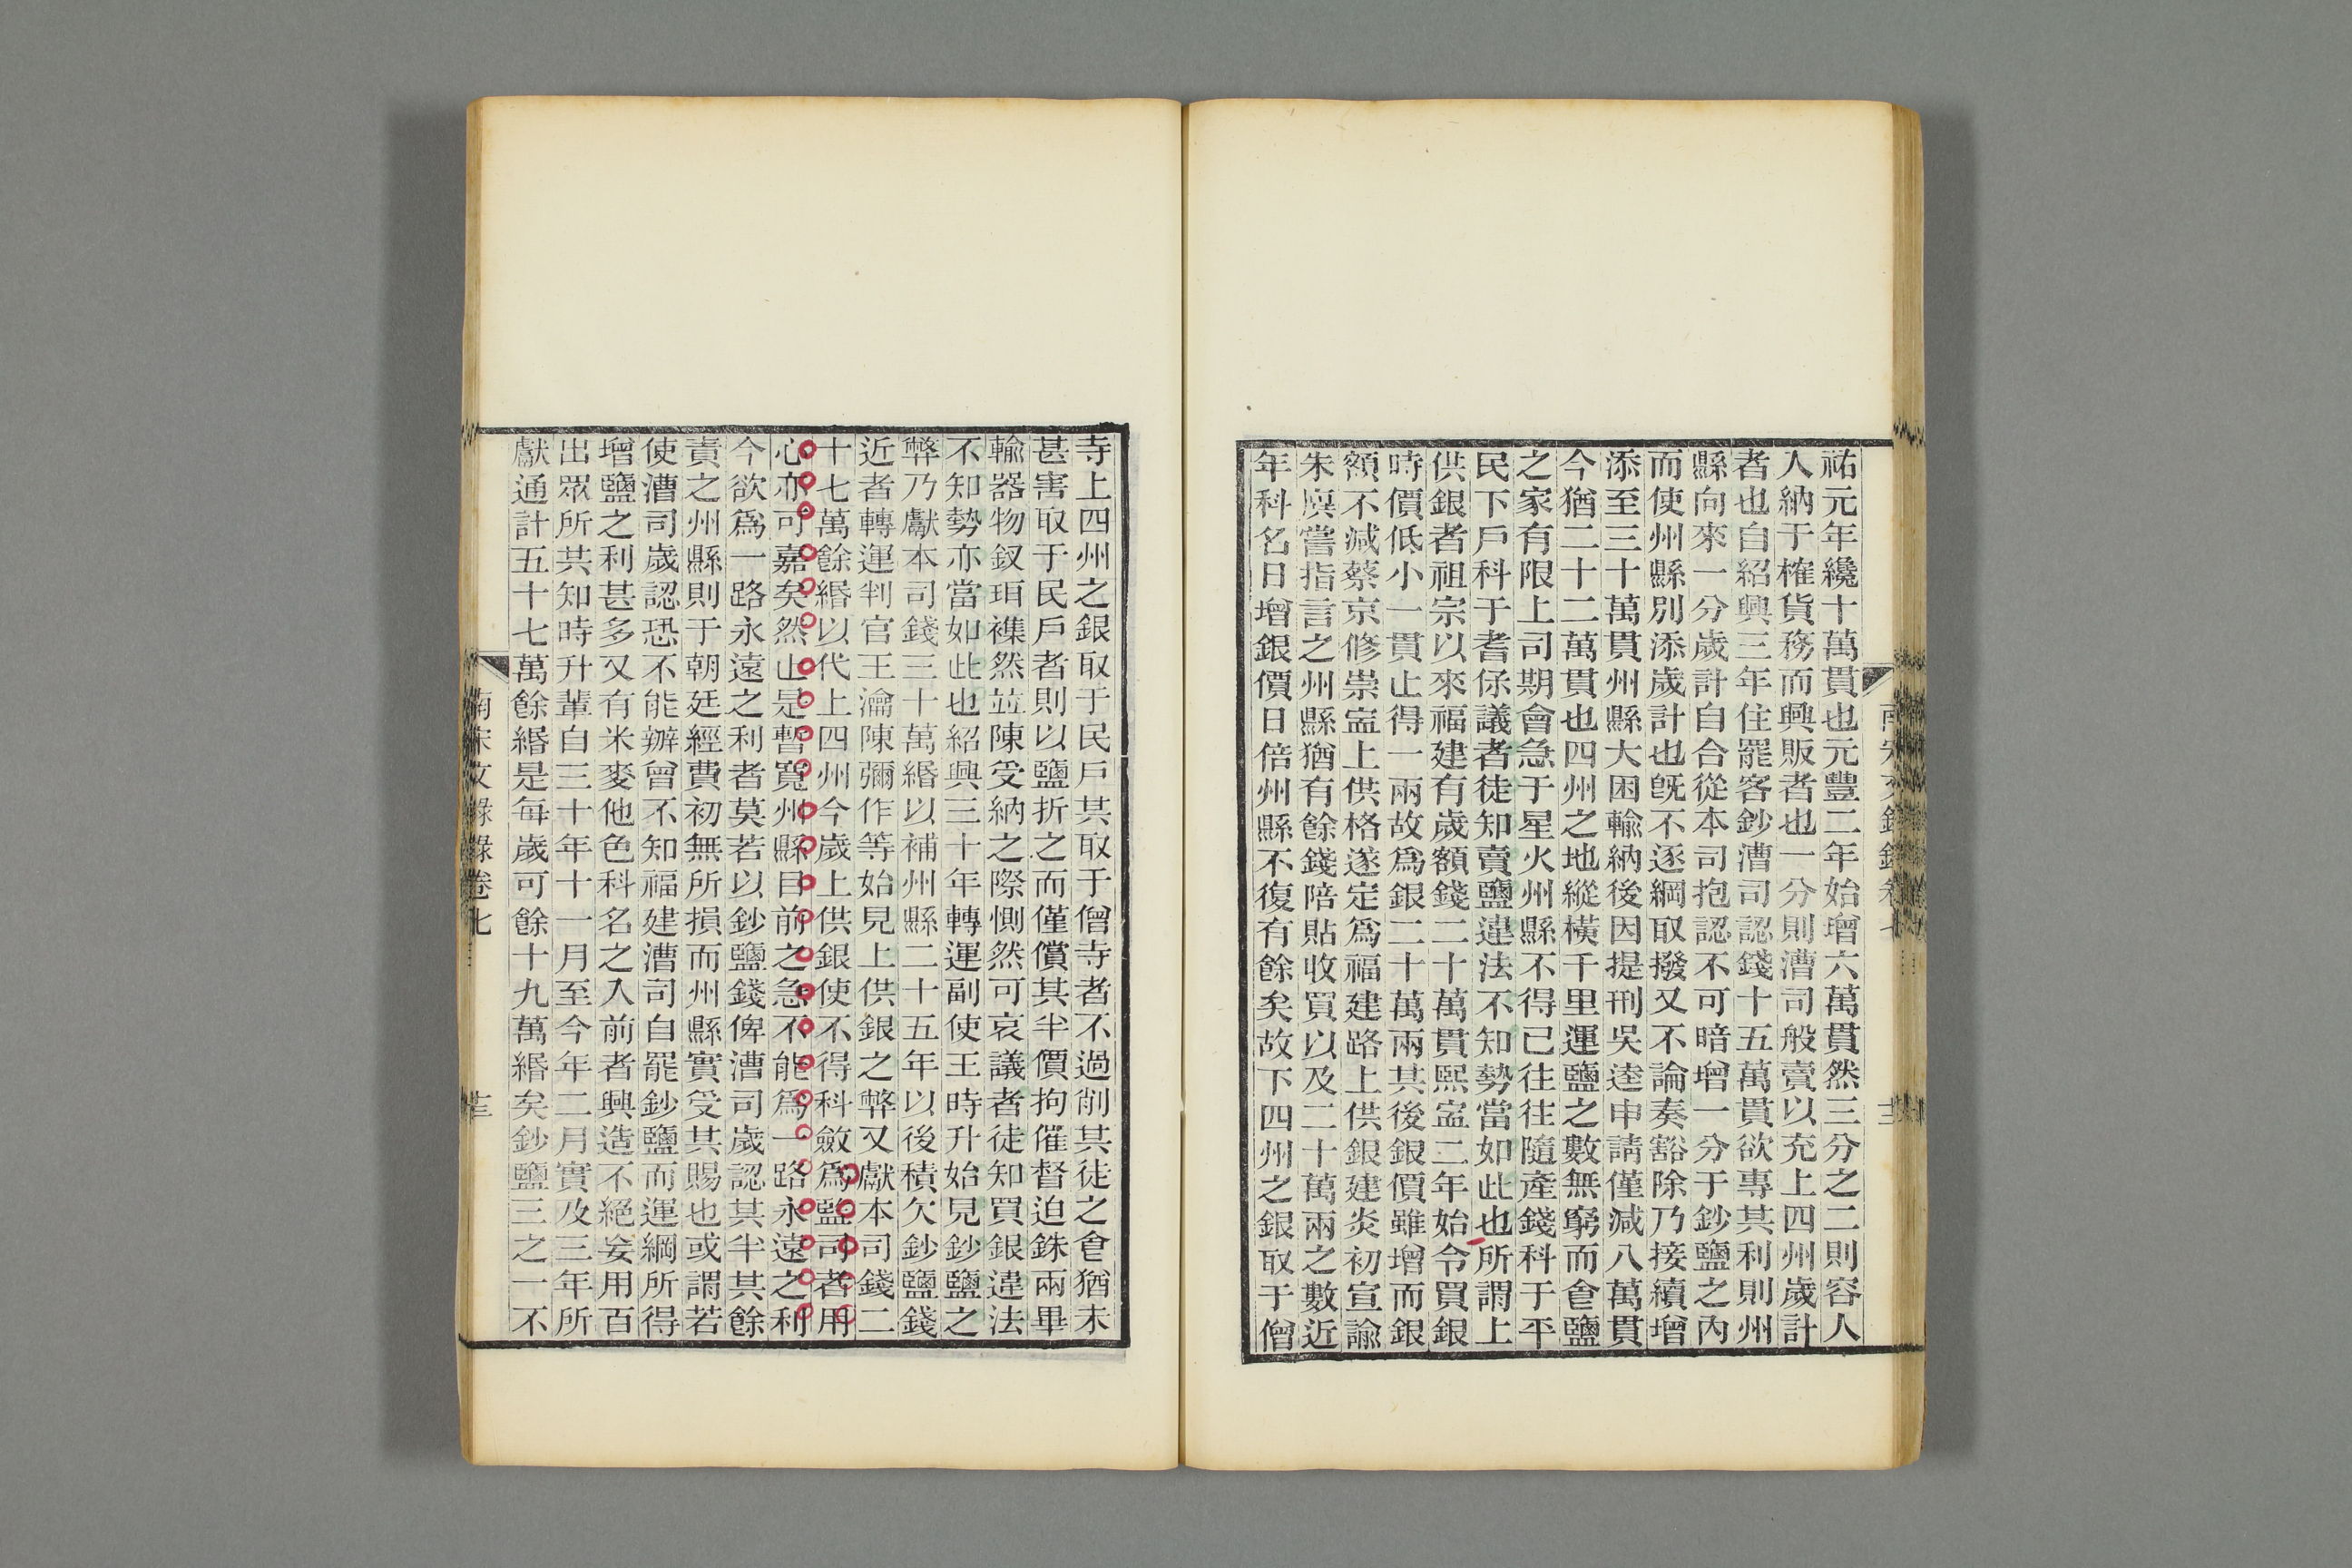 祐元年纔十萬貫也元豐二年始增六萬貫然三分之二則容人
人納于榷貨務而興販者也一分則漕司般賣以充上四州歲計
者也自紹興三年住罷客鈔漕司認錢十五萬貫欲專其利則州
縣向來一分歲計自合從本司抱認不可暗增一分于鈔鹽之內
而使州縣別添歲計也旣不逐綱取撥又不論奏豁除乃接續增
添至三十萬貫州縣大困輸納後因提刑吳逵申請僅減八萬貫
今猶二十二萬貫也四州之地縱橫千里運鹽之數無窮而食鹽
之家有限上司期會急于星火州縣不得已往往隨產錢科于平
民下戶科于耆保議者徒知賣鹽違法不知勢當如此也所謂上
供銀者祖宗以來福建有歲額錢二十萬貫熙寍二年始令買銀
時價低小一貫止得一兩故爲銀二十萬兩其後銀價雖增而銀
額不減蔡京修崇寍上供格遂定爲福建路上供銀建炎初宣諭
朱䖍嘗指言之州縣猶有餘錢陪貼收買以及二十萬兩之數近
年科名日增銀價日倍州縣不復有餘矣故下四州之銀取于僧
南宋文錄錄卷七
寺上四州之銀取于民戶其取于僧寺者不過削其徒之食猶未
甚害取于民戶者則以鹽折之而僅償其半價拘催督迫銖兩畢
輸器物釵珥襍然竝陳受納之際惻然可哀議者徒知買銀違法
不知勢亦當如此也紹興三十年轉運副使王時升始見鈔鹽之
弊乃獻本司錢三十萬緡以補州縣二十五年以後積欠鈔鹽錢
近者轉運判官王瀹陳彌作等始見上供銀之弊又獻本司錢二
十七萬餘緡以代上四州今歲上供銀使不得科斂爲監司者用
心亦可嘉矣然止是暫寬州縣目前之急不能爲一路永遠之利
今欲爲一路永遠之利者莫若以鈔鹽錢俾漕司歲認其半其餘
責之州縣則于朝廷經費初無所損而州縣實受其賜也或謂若
使漕司歲認恐不能辦曾不知福建漕司自罷鈔鹽而運綱所得
增鹽之利甚多又有米麥他色科名之入前者興造不絕妄用百
出眾所共知時升輩自三十年十一月至今年二月實及三年所
獻通計五十七萬餘緡是每歲可餘十九萬緡矣鈔鹽三之一不
南宋文錄錄卷七